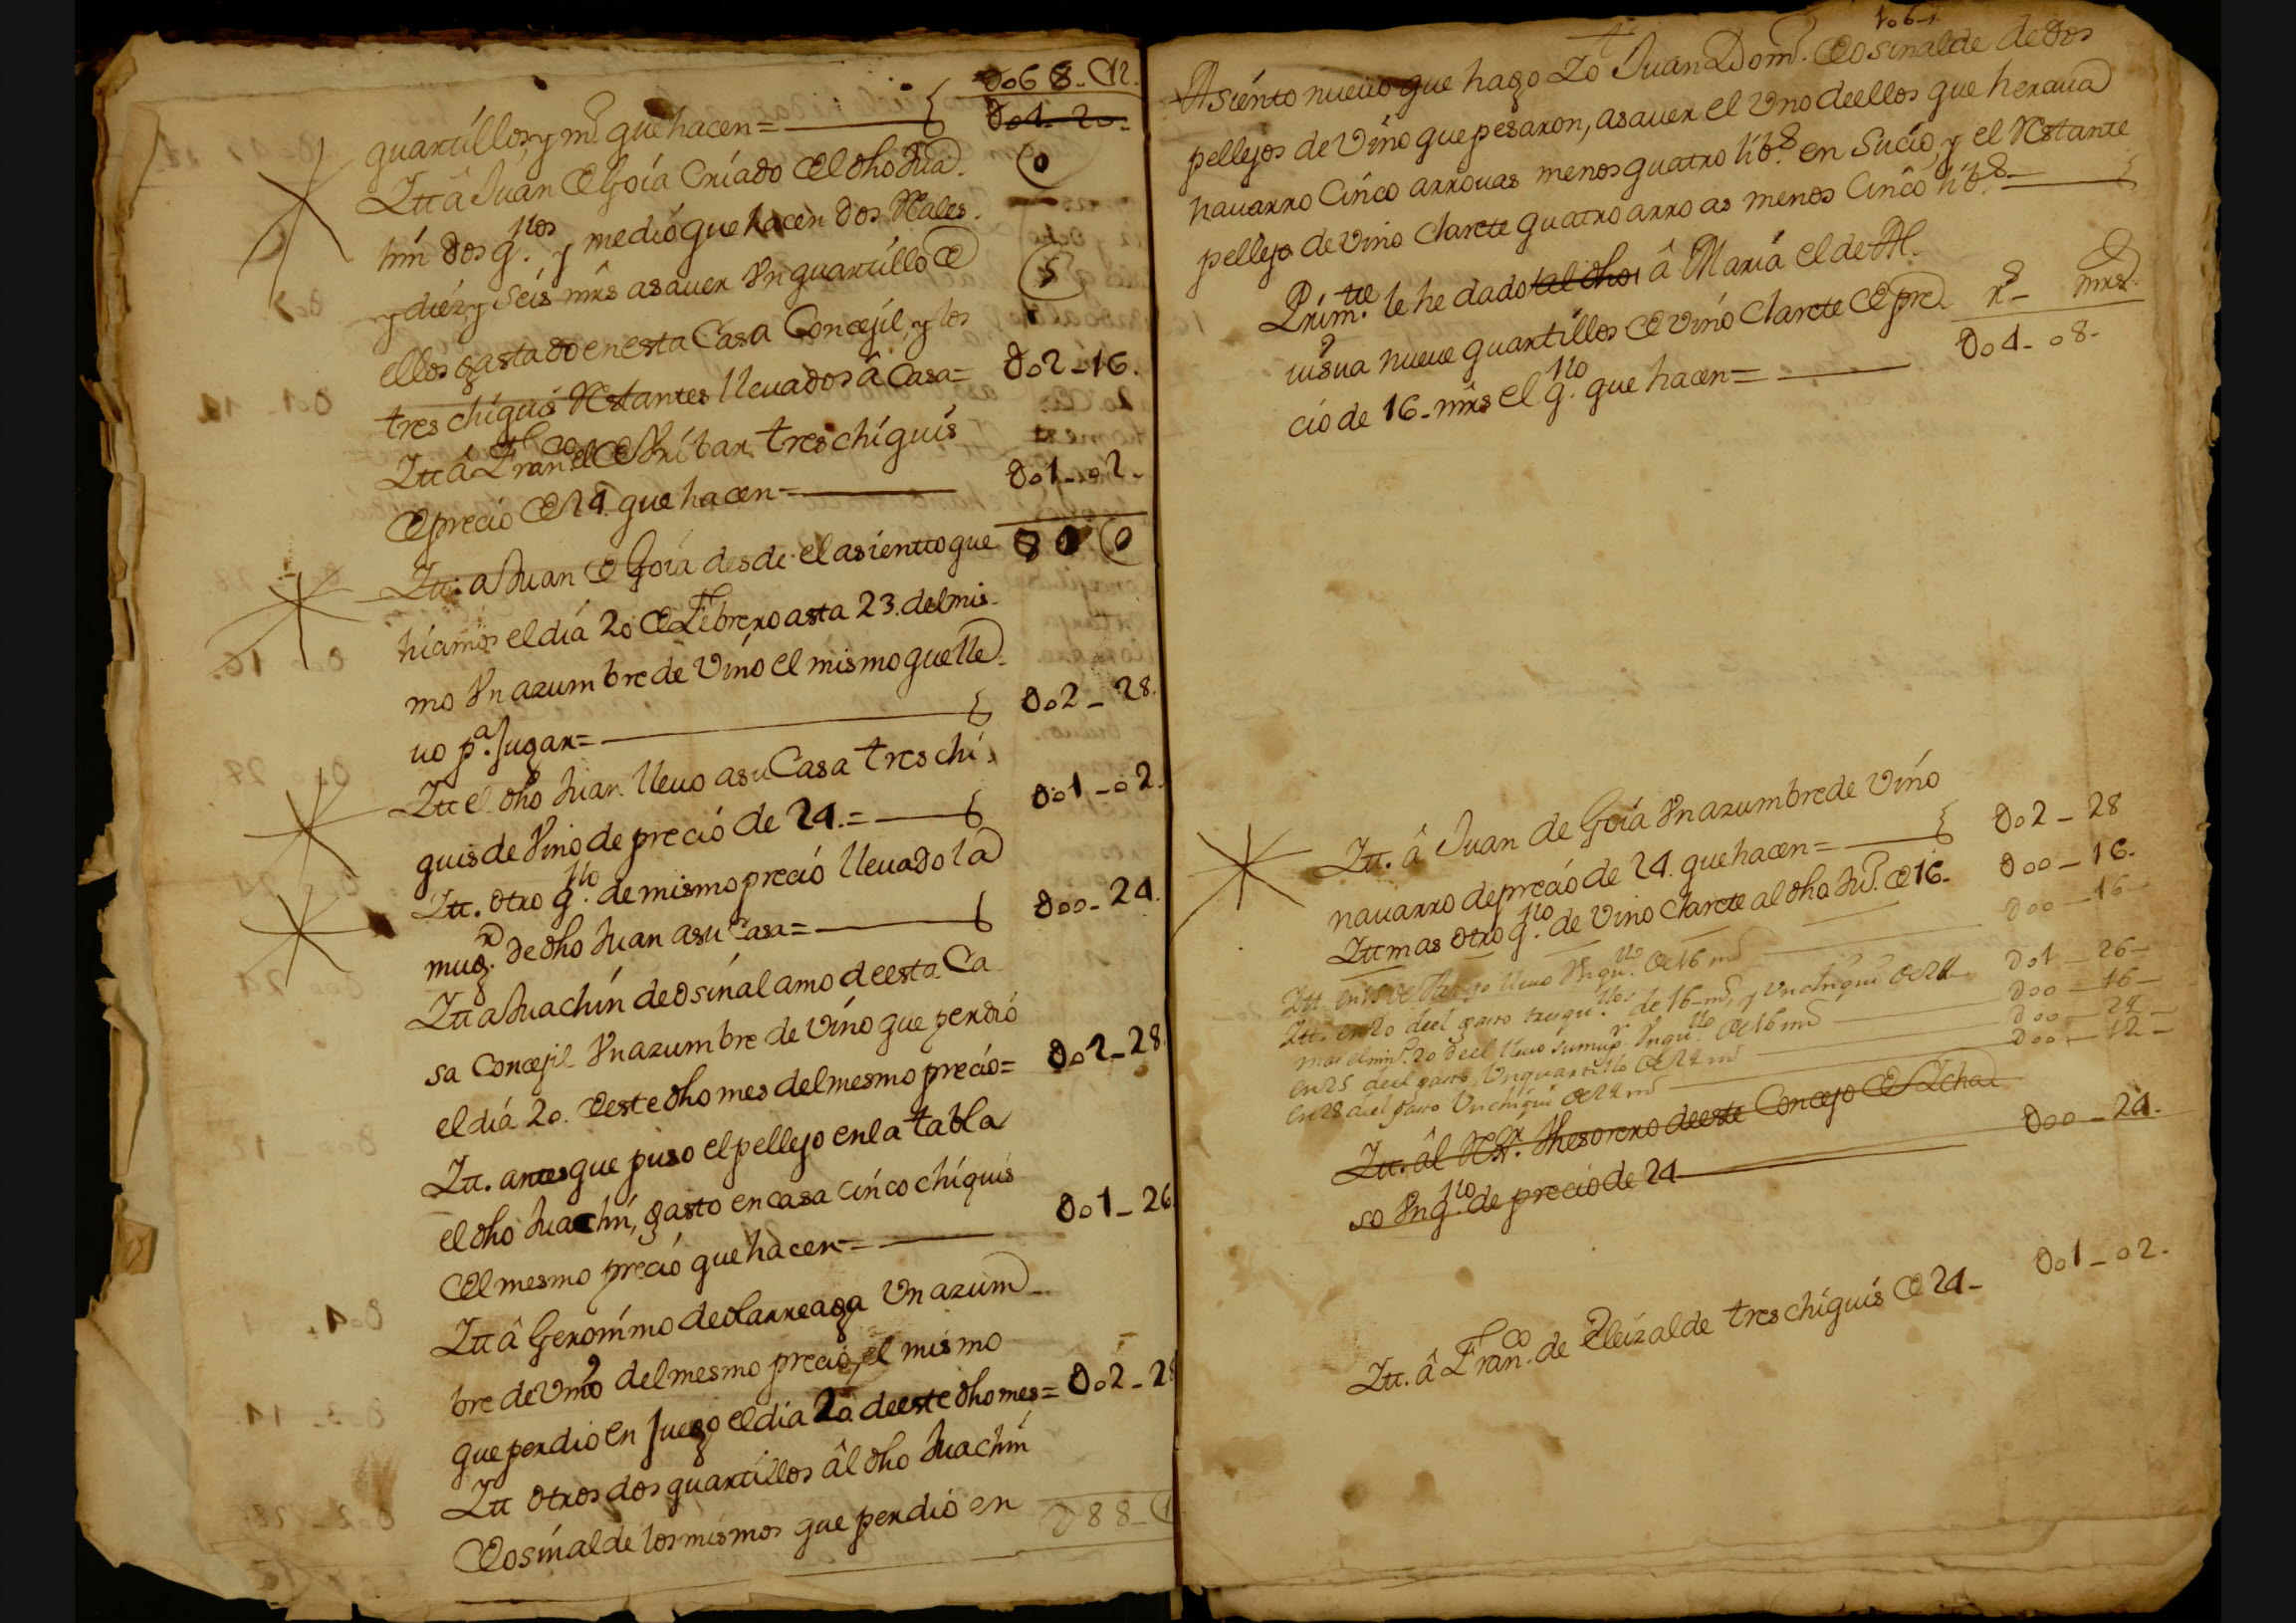 Do68-C12.
quartillos, y ms. que hacen= Do1-20-
Itt â Juan de Goia Criado del dho Jua-
hin dos q.llos y medio que hacen dos Reales.
y diez y seis mrs asauer Vn quartillo de
ellos gastado en esta Casa Concejil, y los
tres chiquis Restantes lleuados â Casa= Do2-16.
Itt â Fran.co de Vribar tres chiquis
de precio de 24. que hacen= Do1-o2-
Itt. a Juan de Goia desde el asientto que
hiamos el dia 20 de Febrero asta 23. del mis-
mo Vn azumbre de Vino el mismo que lle-
uo p.a Jugar= Do2-28.
Itt el dho Juan lleuo asu Casa tres chi-
quis de Vino de precio de 24.= Do1-o2.
Itt. otro q.llo de mismo precio lleuado la
mug.r de dho Juan asu Casa= Doo-24.
Itt a Juachin de osinal amo de esta Ca-
sa Concejil Vn azumbre de Vino que perdió
el dia 20. de este dho mes del mesmo precio= Do2-28.
Itt. antes que puso el pellejo en la tabla
el dho Juachin, gasto en casa cinco chiquis
del mesmo precio que hacen= Do1-26
Itt â Geronimo de olarreaga Vn azum-
bre de Vino del mesmo precio, el mismo
que perdio en Juego el dia 20 de este dho mes= Do2-28
Itt otros dos quartillos âl dho Juachin
de osinalde los mismos que perdió en
D88-
106-
Asiento nueuo que hago Yo Juan Dom.o de osinalde de dos
pellejos de Vino que pesaron, asauer el Vno de ellos que heraua
nauarro Cinco arrouas menos quatro lib.s en Sucio, y el Restante
pellejo de Vino Clarete quatro arroas menos Cinco lib.s
Prim.te le he dado al dho â Maria el de M.
uisua nueue quartillos de vino Clarete de pre- r.s mrs.
cio de 16-mrs el q.llo que hacen= Do4-o8-
Itt. â Juan de Goia Vn azumbre de Vino
nauarro de precio de 24. que hacen= Do2-28
Itt mas otro q.llo de Vino Clarete al dho Ju.n de 16- Doo-16-
lleuo Vn qu.llo de 16 ms Doo-16-
Itt. en 20 deel gasto tres qu.llos de 16-ms, y Vn chiqui de 24 Do1-26-
mas el mismo 20 deel lleuo su mug.r Vn qu.llo de 16 ms Doo-16-
en 25 deel gasto Vn quartillo de 24 ms Doo-24-
en 28 deel gasto Vn chiqui de 24 ms Doo-12-
Itt. âl R.or thesorero de este Concejo de
so Vn q.llo de precio de 24 Doo-24-
Itt. â Fran.co de Eleizalde tres chiquis de 24- Do1-o2-